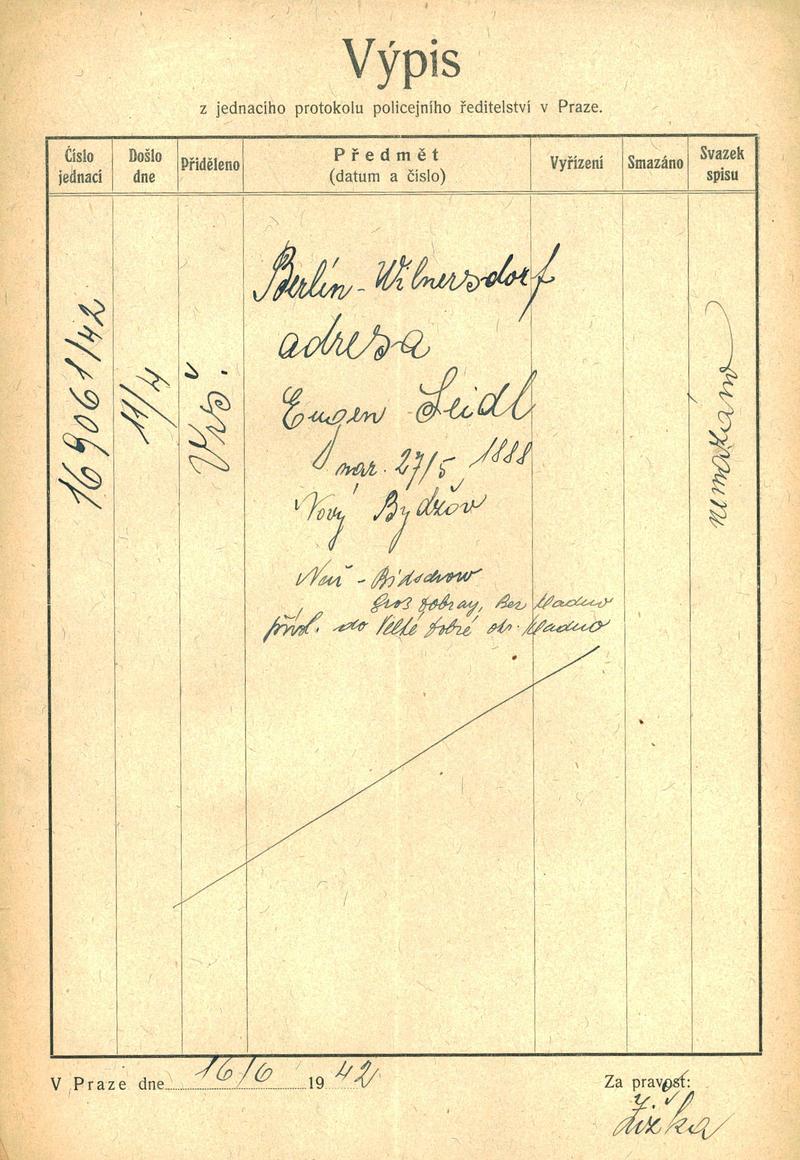 Výpis
z jednacího protokolu policejního ředitelství v Praze.
Číslo jednací
Došlo dne
Přiděleno
Předmět
(datum a číslo)
Vyřízení
Smazáno
Svazek spisu
169061/42
11/4
Vrš.
Berlín - Wilnersdorf
adresa
Eugen Seidl
nar. 27/5 1888
Nový Bydžov
Neu - Bidschow
Groß Dobray, Bez Kladno
přísl. do Velké Dobré okr. Kladno
nemazáno
V Praze dne 16/6 1942
Za pravost:
Žižka